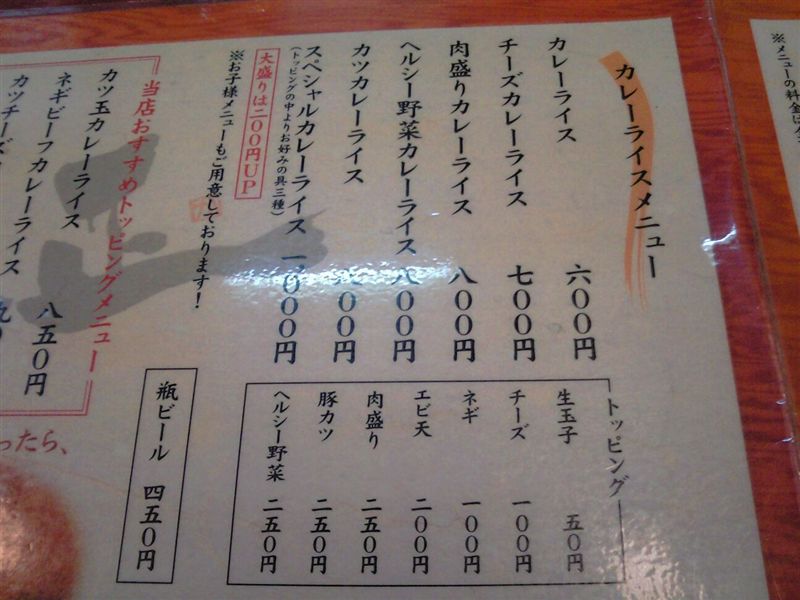 カレーライスメニュー
カレーライス 六〇〇円
チーズカレーライス 七〇〇円
肉盛りカレーライス 八〇〇円
ヘルシー野菜カレーライス 八〇〇円
カツカレーライス 〇〇円
スペシャルカレーライス 一、〇〇〇円
(トッピングの中よりお好みの具三種)
大盛りは二〇〇円UP
※お子様メニューもご用意しております!
トッピング
生玉子 五〇円
チーズ 一〇〇円
ネギ 一〇〇円
エビ天 二〇〇円
肉盛り 二五〇円
豚カツ 二五〇円
ヘルシー野菜 二五〇円
当店おすすめトッピングメニュー
カツ玉カレーライス
ネギビーフカレーライス 八五〇円
カツチーズ
ライス
瓶ビール 四五〇円
ったら、
※メニューの料金は